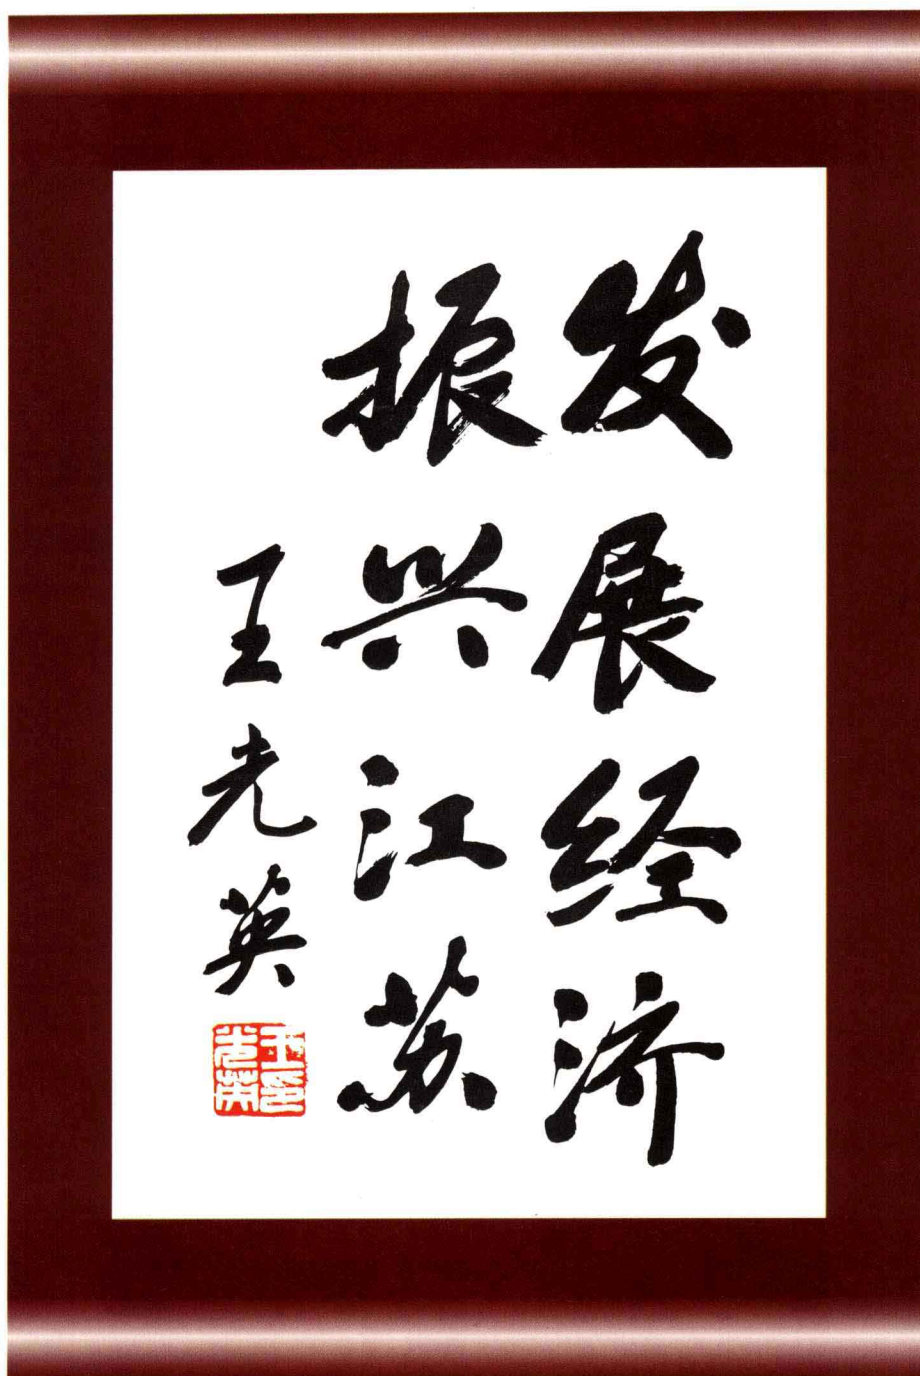 发展经济
振兴江苏
王光英
王光英印